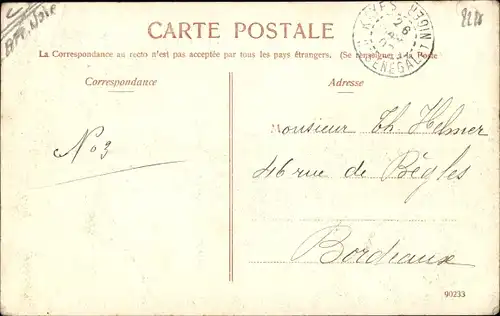 Afr. Noire
CARTE POSTALE
La Correspondance au recto n'est pas acceptée par tous les pays étrangers. (Se renseigner à la Poste
Correspondance
Adresse
KAYES
26
SÉNÉGAL
Monsieur Th Helmer
No 3
46 rue de Bègles
Bordeaux
90233